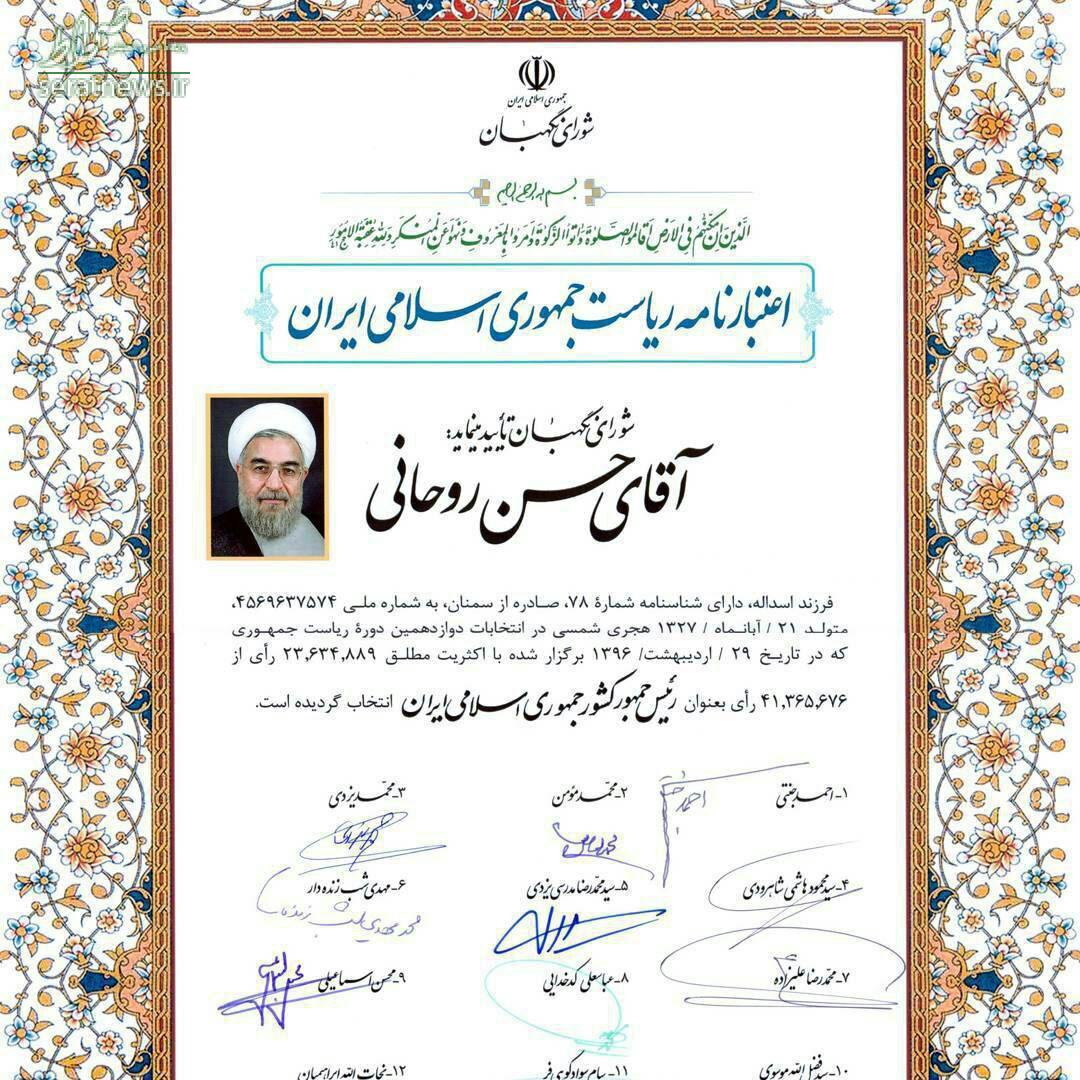 seratnews.ir
جمهوری اسلامی ایران
شورای نگهبان
بسم الله الرحمن الرحیم
الَّذینَ إِن مَکَّنّٰهُم فِی الاَرضِ أَقامُوا الصَّلوٰةَ وَ ءاتَوُا الزَّکوٰةَ وَ أَمَروا بِالمَعروفِ وَ نَهَوا عَنِ المُنکَرِ وَ لِلّهِ عٰقِبَةُ الاُمورِ
اعتبارنامه ریاست جمهوری اسلامی ایران
شورای نگهبان تأیید مینماید:
آقای حسن روحانی
فرزند اسداله، دارای شناسنامه شمارهٔ ۷۸، صادره از سمنان، به شماره ملی ۴۵۶۹۶۳۷۵۷۴،
متولد ۲۱ / آبانماه / ۱۳۲۷ هجری شمسی در انتخابات دوازدهمین دورهٔ ریاست جمهوری
که در تاریخ ۲۹ / اردیبهشت/ ۱۳۹۶ برگزار شده با اکثریت مطلق ۲۳,۶۳۴,۸۸۹ رأی از
۴۱,۳۶۵,۶۷۶ رأی بعنوان رئیس جمهور کشور جمهوری اسلامی ایران انتخاب گردیده است.
۱- احمد جنتی ۲- محمد مؤمن ۳- محمد یزدی
۴- سید محمود هاشمی شاهرودی ۵- سید محمدرضا مدرسی یزدی ۶- مهدی شب زنده دار
۷- محمدرضا علیزاده ۸- عباسعلی کدخدایی ۹- محسن اسماعیلی
۱۰- سید فضل الله موسوی ۱۱- سام سوادکوهی فر ۱۲- نجات الله ابراهیمیان